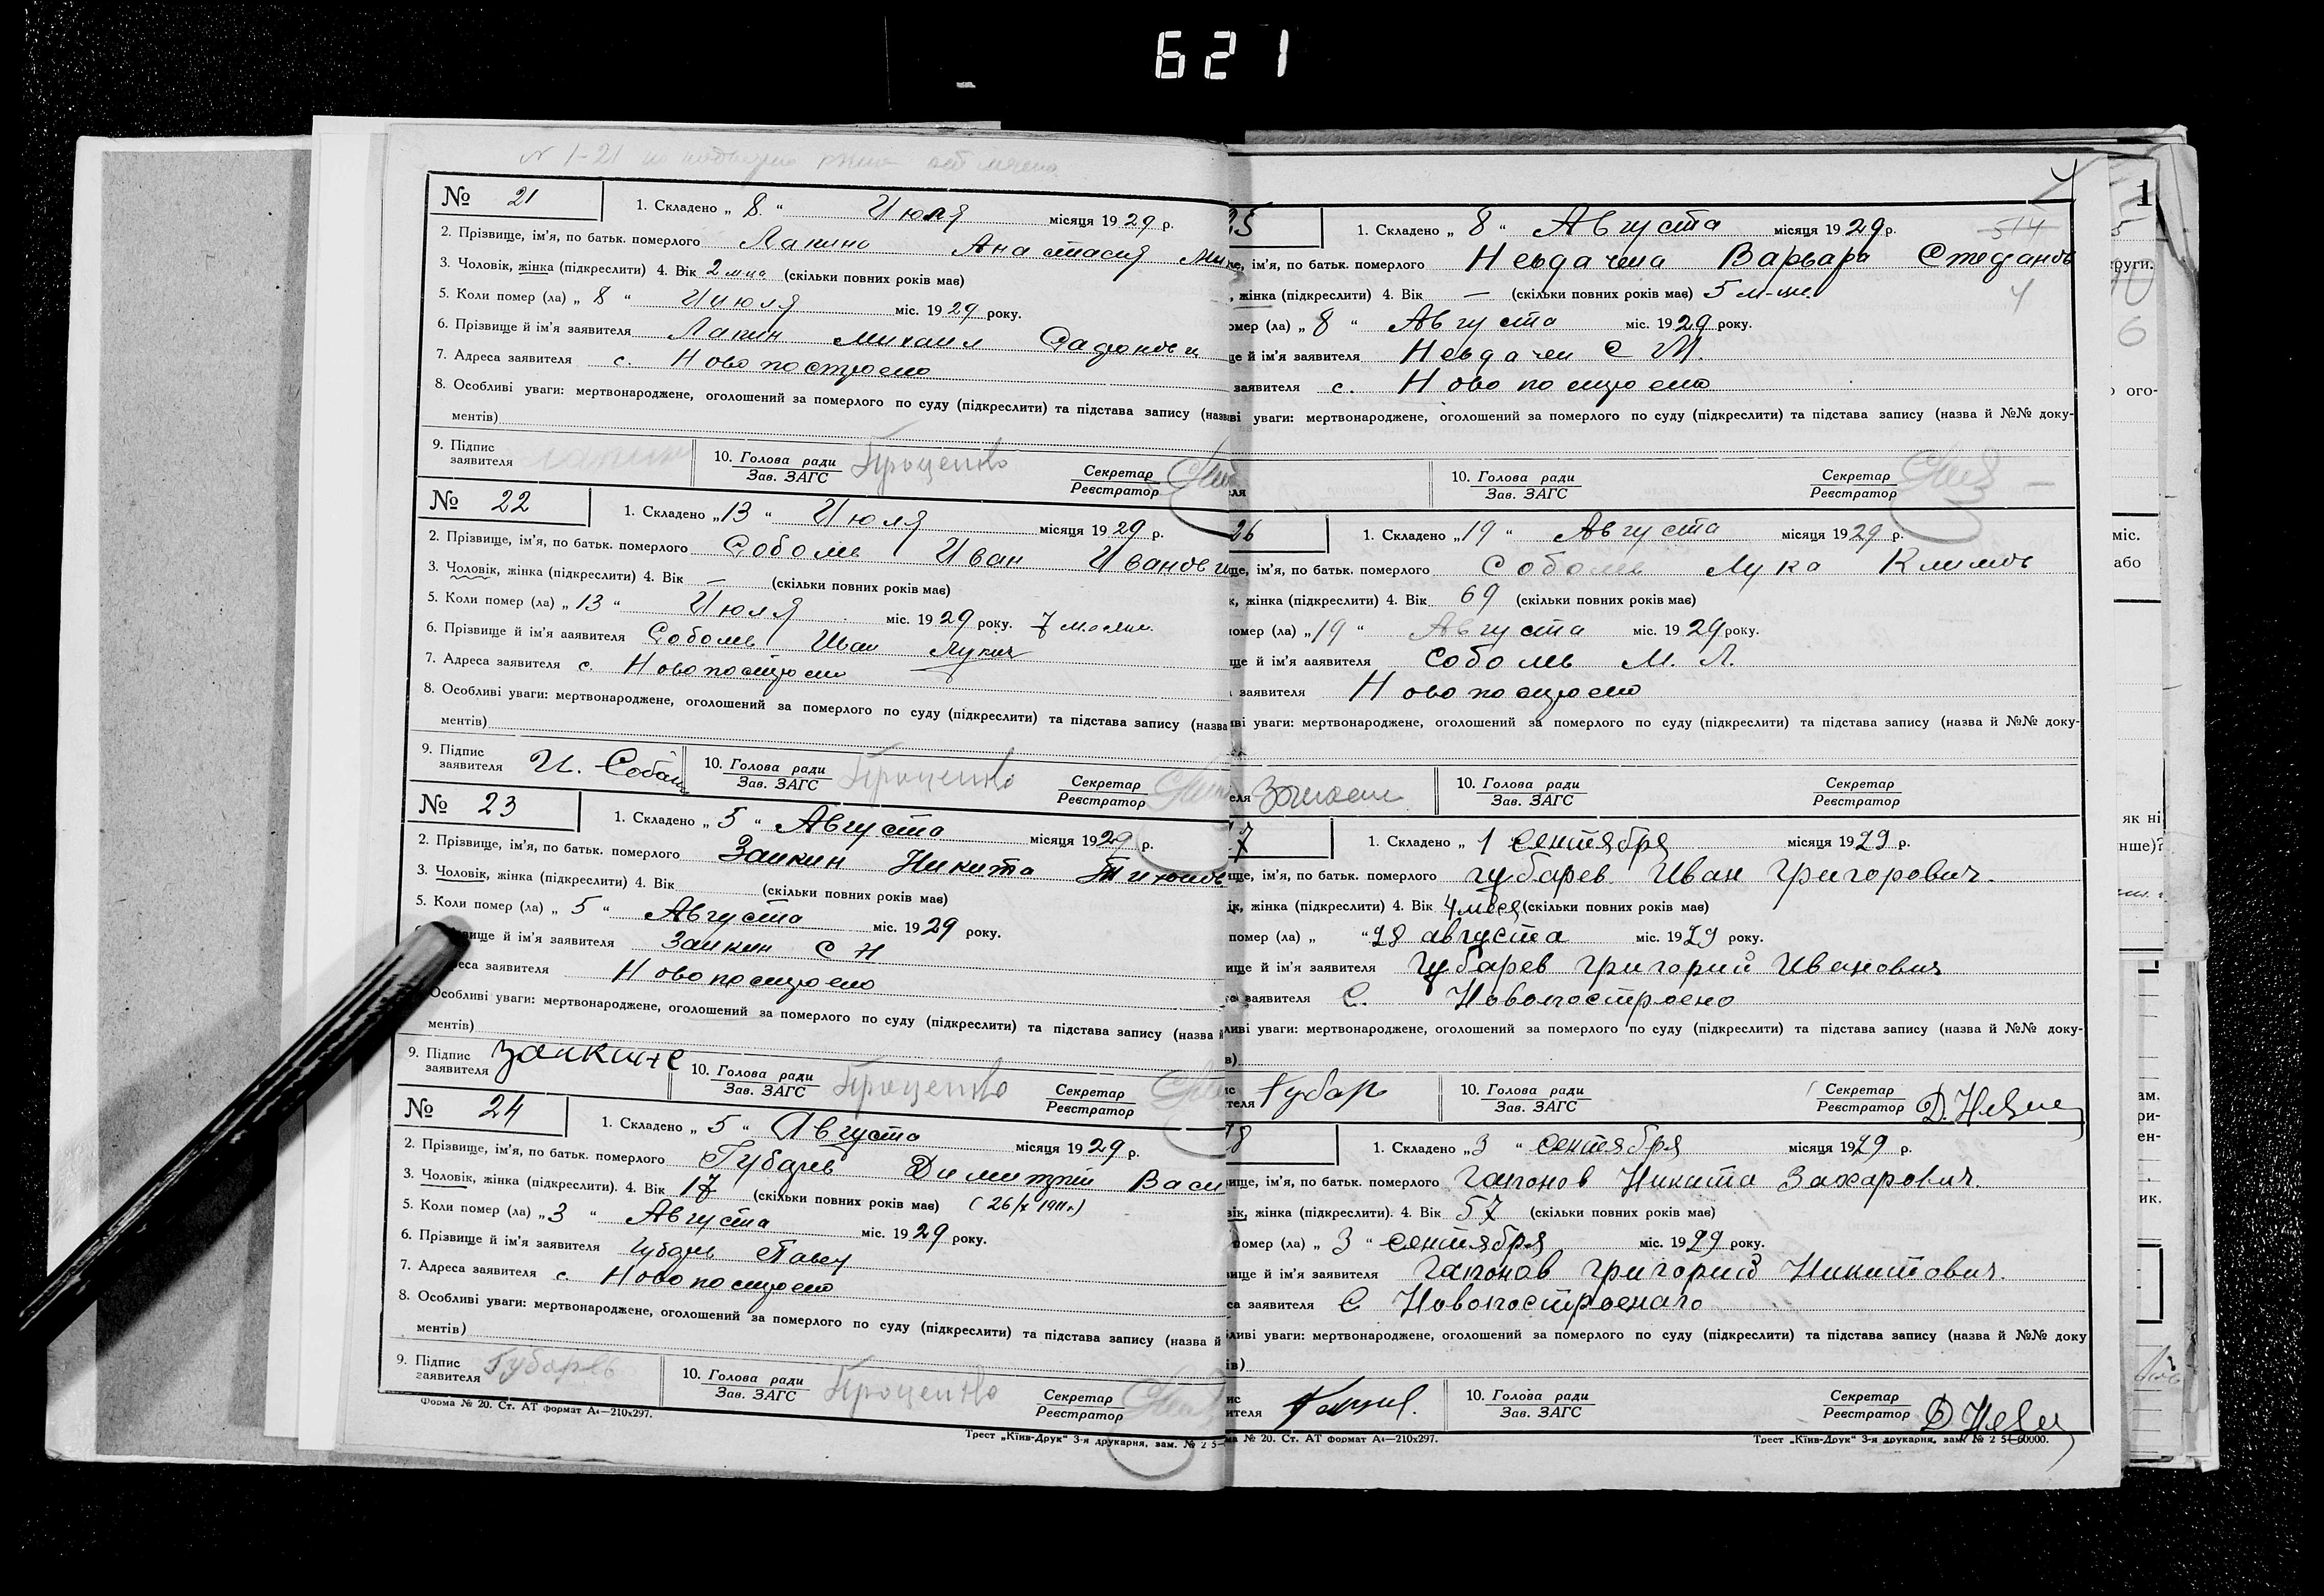 621
№ 21
1. Складено „ 8 “ Июля місяця 1929 р.
2. Прізвище, ім'я, по батьк. померлого Лапина Анастасия
3. Чоловік, жінка (підкреслити) 4. Вік 2 (скільки повних років має)
5. Коли помер (ла) „ 8 “ Июля міс. 1929 року.
6. Прізвище й ім'я заявителя Лапин Михаил
7. Адреса заявителя с. Новопостроено
8. Особливі уваги: мертвонароджене, оголошений за померлого по суду (підкреслити) та підстава запису (назва
ментів)
9. Підпис заявителя
10. Голова ради Зав. ЗАГС Проценко
Секретар Реєстратор
№ 22
1. Складено „13 “ Июля місяця 1929 р.
2. Прізвище, ім'я, по батьк. померлого Соболь Иван Иванови
3. Чоловік, жінка (підкреслити) 4. Вік — (скільки повних років має)
5. Коли помер (ла) „ 13 “ Июля міс. 1929 року. 7
6. Прізвище й ім'я заявителя Соболь Иван Лукич
7. Адреса заявителя с. Новопостроено
8. Особливі уваги: мертвонароджене, оголошений за померлого по суду (підкреслити) та підстава запису (назва
ментів)
9. Підпис заявителя И. Собол
10. Голова ради Зав. ЗАГС Проценко
Секретар Реєстратор
№ 23
1. Складено „ 5 “ Августа місяця 1929 р.
2. Прізвище, ім'я, по батьк. померлого Заикин Никита Тихонов
3. Чоловік, жінка (підкреслити) 4. Вік (скільки повних років має)
5. Коли помер (ла) „ 5 “ Августа міс. 1929 року.
вище й ім'я заявителя Заикин С Н
еса заявителя Новопостроено
Особливі уваги: мертвонароджене, оголошений за померлого по суду (підкреслити) та підстава запису (назва й
ментів)
9. Підпис заявителя
10. Голова ради Зав. ЗАГС Проценко
Секретар Реєстратор
№ 24
1. Складено „ 5 “ Августа місяця 1929 р.
2. Прізвище, ім'я, по батьк. померлого Губарев Димитрий Васи
3. Чоловік, жінка (підкреслити). 4. Вік 17 (скільки повних років має) (26/X 1911 г)
5. Коли помер (ла) „ 3 “ Августа міс. 1929 року.
6. Прізвище й ім'я заявителя Губарев Павел
7. Адреса заявителя с. Новопостроено
8. Особливі уваги: мертвонароджене, оголошений за померлого по суду (підкреслити) та підстава запису (назва й
ментів)
9. Підпис заявителя Губарев
10. Голова ради Зав. ЗАГС Проценко
Секретар Реєстратор
Форма № 20. Ст. АТ формат А4—210х297.
Трест „Київ-Друк“ 3-я друкарня, зам. № 2 5
25
1. Складено „ 8 “ Августа місяця 1929 р.
ім'я, по батьк. померлого Невдачена Варвара Стефанов
жінка (підкреслити) 4. Вік — (скільки повних років має) 5 м-це.
омер (ла) „ 8 “ Августа міс. 1929 року.
ще й ім'я заявителя Невдачен С М.
заявителя с. Новопостроено
ві уваги: мертвонароджене, оголошений за померлого по суду (підкреслити) та підстава запису (назва й №№ доку-
10. Голова ради Зав. ЗАГС
Секретар Реєстратор
26
1. Складено „19 “ Августа місяця 1929 р.
ще, ім'я, по батьк. померлого Соболь Лука Климов
к, жінка (підкреслити) 4. Вік 69 (скільки повних років має)
омер (ла) „19 “ Августа міс. 1929 року.
ще й ім'я заявителя Соболь М. Л.
заявителя Новопостроено
ві уваги: мертвонароджене, оголошений за померлого по суду (підкреслити) та підстава запису (назва й №№ доку-
10. Голова ради Зав. ЗАГС
Секретар Реєстратор
7
1. Складено „ 1 Сентября місяця 1929 р.
ище, ім'я, по батьк. померлого Губарев Иван Григорович.
ік, жінка (підкреслити) 4. Вік 4 меся (скільки повних років має)
помер (ла) „ “28 августа міс. 1929 року.
ище й ім'я заявителя Губарев Григорий Иванович
заявителя С. Новопостроено
ливі уваги: мертвонароджене, оголошений за померлого по суду (підкреслити) та підстава запису (назва й №№ доку-
в)
теля Губар
10. Голова ради Зав. ЗАГС
Секретар Реєстратор
8
1. Складено „3 “ Сентября місяця 1929 р.
ище, ім'я, по батьк. померлого Гапонов Никита Захарович.
вік, жінка (підкреслити). 4. Вік 57 (скільки повних років має)
помер (ла) „ 3 “ Сентября міс. 1929 року.
ище й ім'я заявителя Гапонов Григорий Никитович.
са заявителя С Новопостроенаго
ливі уваги: мертвонароджене, оголошений за померлого по суду (підкреслити) та підстава запису (назва й №№ доку
ів)
ителя
10. Голова ради Зав. ЗАГС
Секретар Реєстратор
ма № 20. Ст. АТ формат А4—210х297.
Трест „Київ-Друк“ 3-я друкарня, зам. № 2 5—60000.
1
руги.
6
ого-
міс.
або
як ні
нше)?
ам.
ри-
ен-
ик.